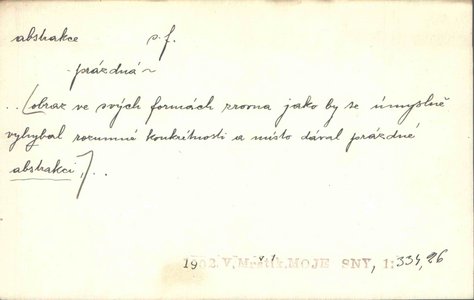 abstrakce s. f.
prázdná ~
..(obraz ve svých formách zrovna jako by se úmyslně
vyhýbal rozumné konkrétnosti a místo dával prázdné
abstrakci,)..
V. MOJE SNY, 1: 334, 26